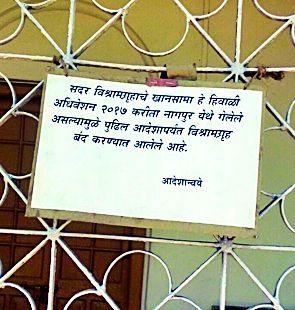 सदर विश्रामगृहाचे खानसामा हे हिवाळी
अधिवेशन २०१७ करीता नागपुर येथे गेलेले
असल्यामुळे पुढिल आदेशापर्यंत विश्रामगृह
बंद करण्यात आलेले आहे.
आदेशान्वये